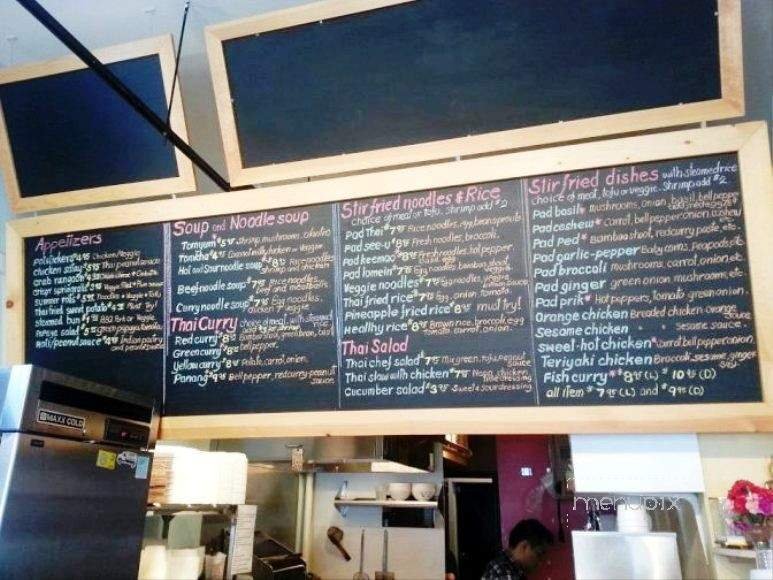 Appetizers
Potstickers $4.95 Chicken/Veggie
Chicken satay $5.95 Thai peanut sauce
Crab rangoon
Crispy spring roll
Summer rolls $5.95 Noodles + Veggie + Tofu
Thai fried sweet potato $4.95 Must try!
Steamed bun BBQ Pork or Veggie
Papaya salad green papaya, tomato
Roti/peanut sauce $4.95 Indian pastry and peanut sauce
Soup and Noodle soup
Tomyum Shrimp, mushroom, cilantro
Tomkha Coconut milk, chicken or Veggie
Hot and Sour noodle soup Rice noodles shrimp and chicken
Beef noodle soup Rice noodles and meatballs
Curry noodle soup Egg noodles, chicken
Thai Curry choice of meat, with steamed rice
Red curry Bamboo shoot, green bean, basil
Green curry Bell pepper
Yellow curry Potato, carrot, onion.
Panang $9.95 Bell pepper, red curry peanut sauce
Stir fried noodles & Rice
choice of meat or tofu. Shrimp add $2
Pad Thai Rice noodles, egg, bean sprouts
Pad see-u Fresh noodles, broccoli.
Pad keemao Fresh noodles, hot pepper,
Pad lomein Egg noodles, bamboo shoot,
Veggie noodles Egg noodles,
Thai fried rice Egg, onion, tomato
Pineapple fried rice must try!
Healthy rice Brown rice, broccoli, egg tomato, carrot, onion.
Thai Salad
Thai chef salad $7.95 Mix green, tofu, Peanut sauce
Thai slaw with chicken $7.95 Napa, chicken, lime dressing
Cucumber salad $3.95 Sweet & Sour dressing
Stir fried dishes with steamed rice
choice of meat, tofu or veggie. Shrimp add $2
Pad basil * mushrooms, onion, basil, bell pepper
Pad cashew * Carrot, bell pepper, onion, cashew
Pad ped * Bamboo shoot, red curry paste, etc.
Pad garlic-pepper Baby corns, Peapods
Pad broccoli mushrooms, carrot, onion, etc.
Pad ginger green onion, mushrooms, etc.
Pad prik * Hot peppers, tomato, green onion.
Orange chicken Breaded chicken, Orange sauce
Sesame chicken " " Sesame sauce.
Sweet-hot chicken * Carrot, bell pepper, onion
Teriyaki chicken Broccoli, sesame, ginger
Fish curry * $8.95 (L) $10.95 (D)
all item $7.95 (L) and $9.95 (D)
MAXX COLD
menupix